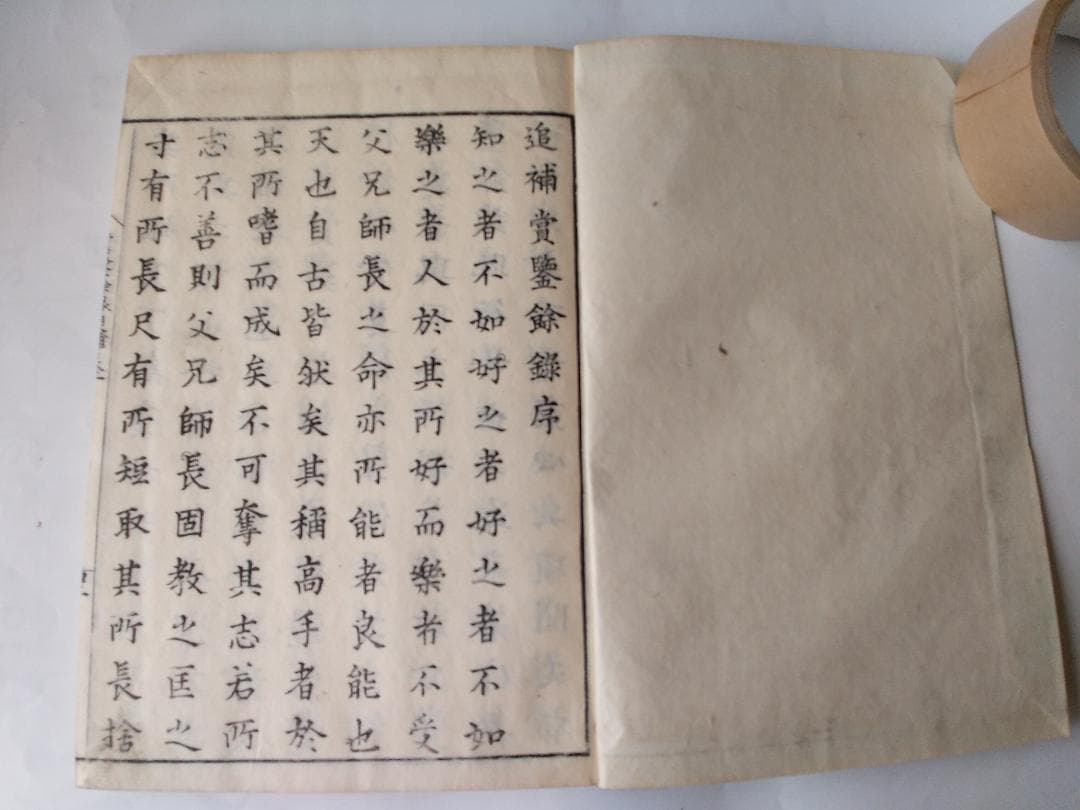 追補賞鑒餘錄序
知之者不如好之者好之者不如
樂之者人於其所好而樂者不受
父兄師長之命亦所能者良能也
天也自古皆然矣其稱高手者於
其所嗜而成矣不可奪其志若所
志不善則父兄師長固教之匡之
寸有所長尺有所短取其所長捨